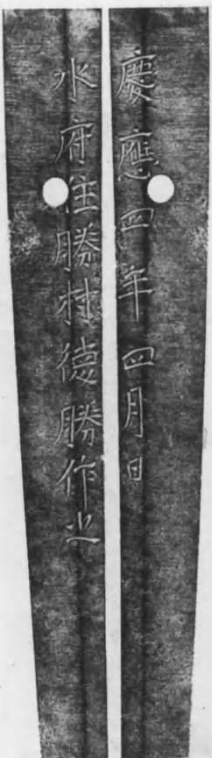 慶應四年四月日
水府住勝村徳勝作之